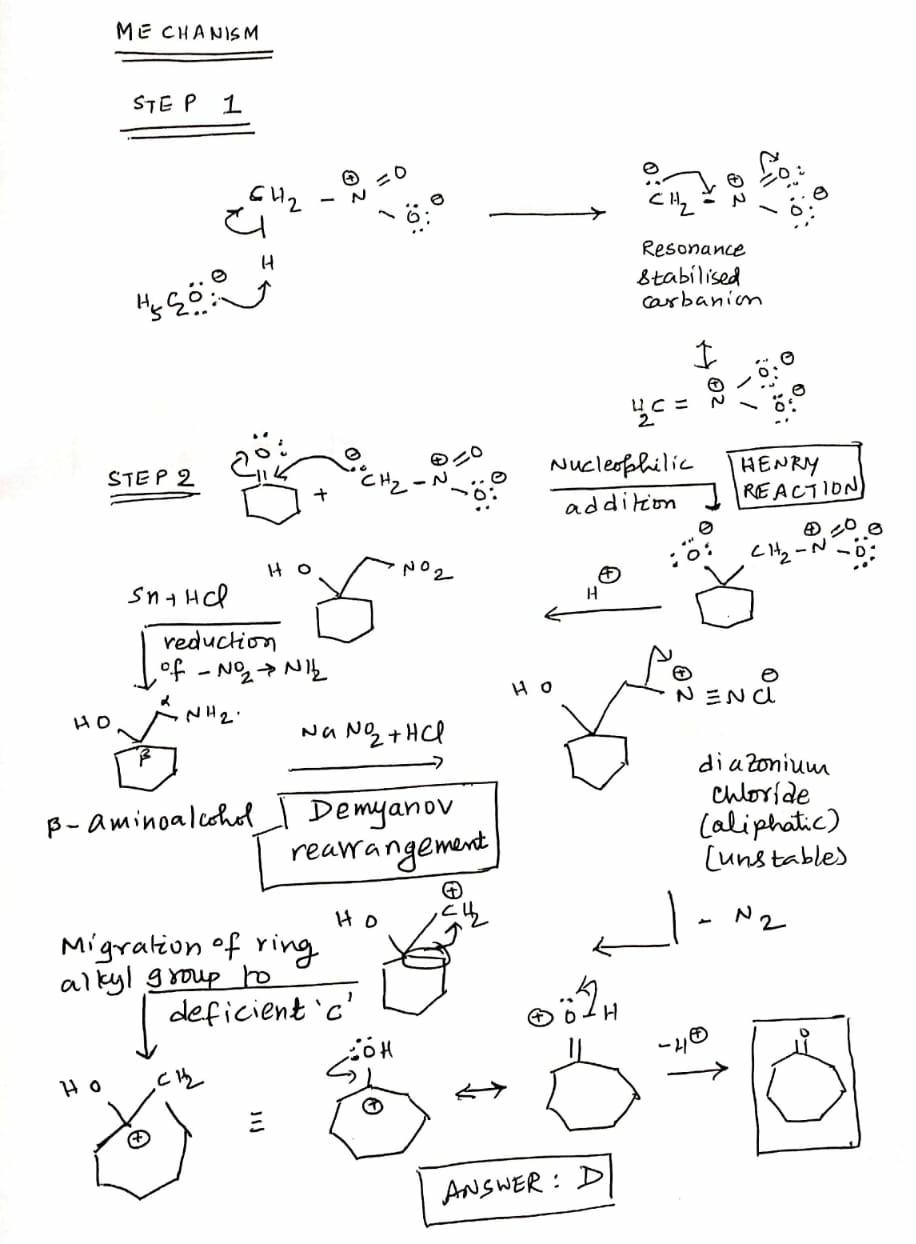 MECHANISM
STEP 1
CH2 - N⊕ =O
- Ö:⊖
H
H5C2Ö:⊖
⊖CH2 - N⊕ =O:
- Ö:⊖
Resonance
stabilised
carbanion
↕
H2C = N⊕ - Ö:⊖
- Ö:⊖
STEP 2
:O:
+
⊖CH2 - N⊕ =O
- Ö:⊖
Nucleophilic
addition
HENRY
REACTION
:Ö:⊖ CH2 - N⊕ =O
- Ö:⊖
H⊕
HO NO2
Sn + HCl
reduction
of - NO2 → NH2
HO α NH2.
β
β- aminoalcohol
NaNO2 + HCl
Demyanov
rearrangement
HO N⊕ ≡ N Cl⊖
diazonium
chloride
(aliphatic)
(unstables)
- N2
HO ⊕CH2
Migration of ring
alkyl group to
deficient 'c'
HO CH2
⊕
≡
:ÖH
⊕
↔
⊕Ö - H
-H⊕
O
ANSWER: D